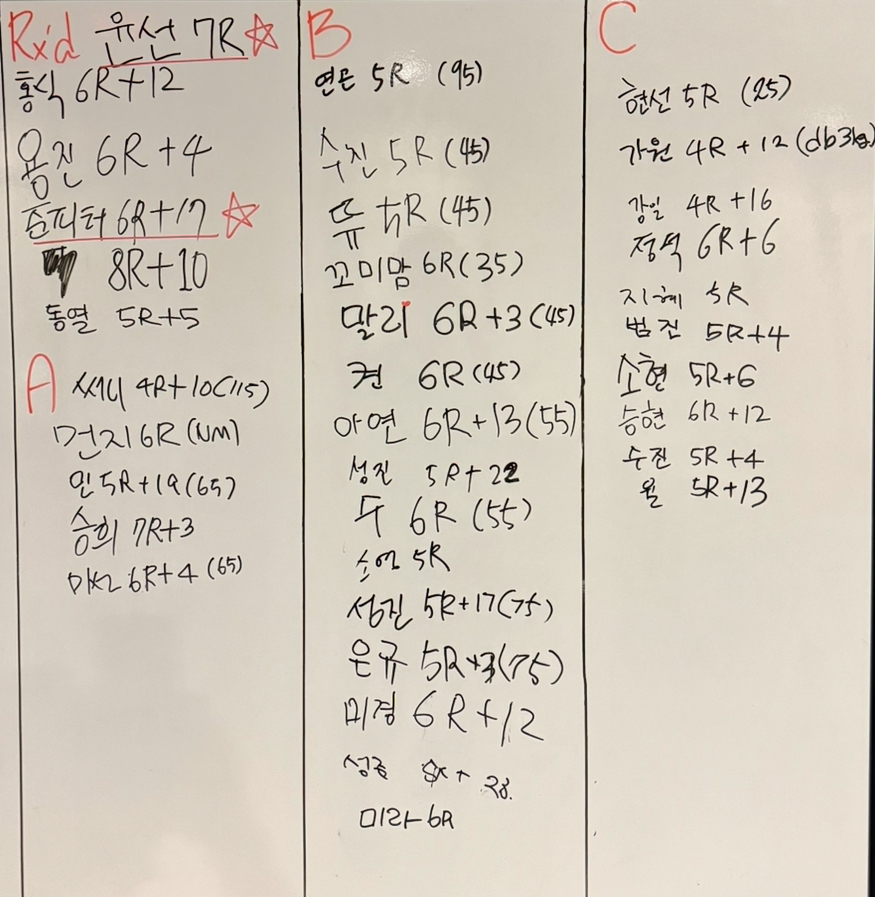 Rx'd 윤선 7R
홍식 6R+12
용진 6R+4
쥼피터 6R+17
8R+10
동열 5R+5
A 써니 4R+10(115)
먼지 6R (NM)
인 5R+19(65)
승희 7R+3
6R+4 (65)
B
연은 5R (95)
수진 5R (45)
뜌 5R (45)
꼬미맘 6R(35)
말리 6R+3(45)
켠 6R(45)
아연 6R+13(55)
성진 5R+22
두 6R (55)
소연 5R
성진 5R+17(75)
은규 5R+3(75)
미경 6R+12
미라 6R
C
현선 5R (25)
가원 4R+12(db3kg)
강일 4R+16
정석 6R+6
지혜 5R
범진 5R+4
소현 5R+6
승현 6R+12
수진 5R+4
욜 5R+13